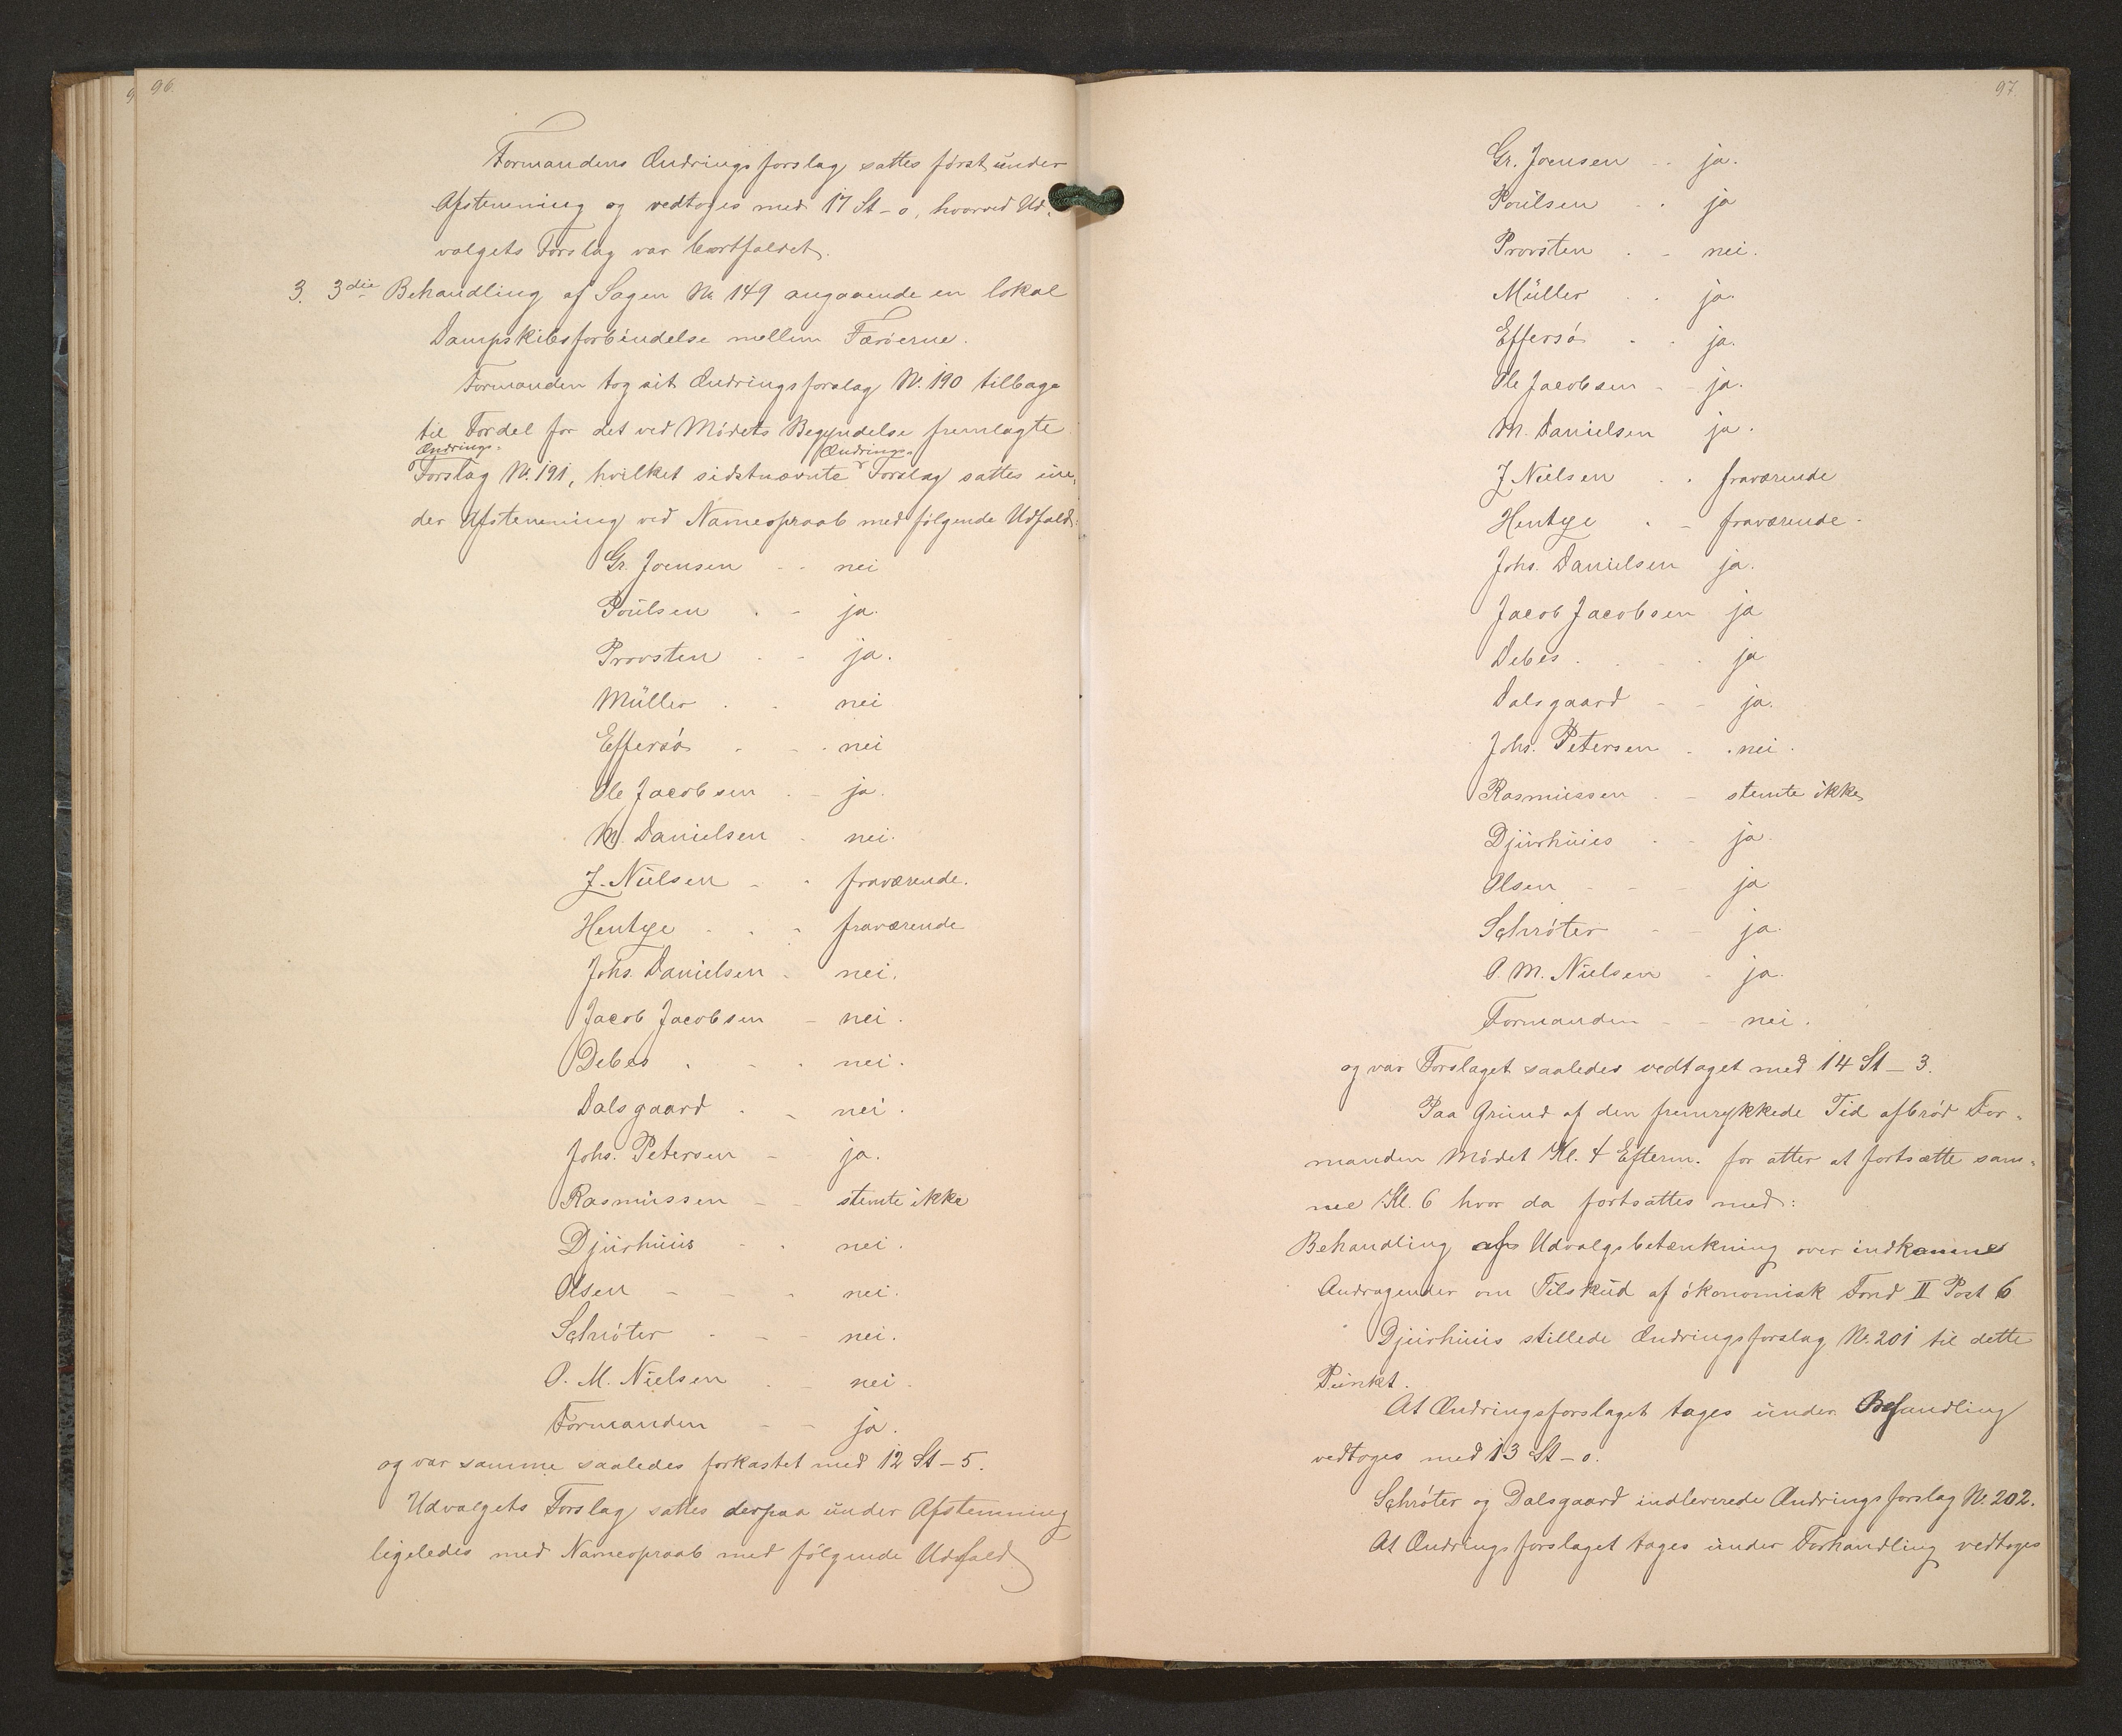 96.
Formandens Ændringsforslag sattes først under
Afstemning og vedtoges med 17 St - 0, hvorved Ud-
valgets Forslag var bortfaldet.
3. 3die Behandling af Sagen No 149 angaaende en lokal
Dampskibsforbindelse mellem Færøerne.
Formanden tog sit Ændringsforslag No. 190 tilbage
til Fordel for det ved Mødets Begyndelse fremlagte
Ændrings- Ændrings-
Forslag No. 191, hvilket sidstnævnte Forslag sattes un-
der Afstemning ved Navneopraab med følgende Udfald:
Gr. Joensen - - nei
Poulsen . - ja.
Provsten . - ja.
Müller . . nei
Effersø . - . nei
Ole Jacobsen . - ja.
M. Danielsen . nei.
J. Nielsen - . fraværende.
Hentze . . - fraværende
Johs. Danielsen - nei.
Jacob Jacobsen - nei.
Debes . - . nei.
Dalsgaard . - nei.
Johs. Petersen - ja.
Rasmussen - - stemte ikke
Djurhuus - . nei.
Olsen - - - nei.
Schrøter . - - nei.
O. M. Nielsen . - nei.
Formanden - - ja.
og var samme saaledes forkastet med 12 St - 5.
Udvalgets Forslag sattes derpaa under Afstemning
ligeledes med Navneopraab med følgende Udfald
97.
Gr. Joensen - . ja.
Poulsen . . ja
Provsten . - nei.
Müller . . ja.
Effersø . . ja.
Ole Jacobsen - - ja.
M. Danielsen ja.
J. Nielsen . . fraværende
Hentze . - fraværende.
Johs. Danielsen ja.
Jacob Jacobsen ja
Debes . . - . ja
Dalsgaard - - ja.
Johs. Petersen . . nei.
Rasmussen . - stemte ikke
Djurhuus . - ja.
Olsen - - - ja
Schrøter - - ja.
O. M. Nielsen - ja.
Formanden - - nei.
og var Forslaget saaledes vedtaget med 14 St - 3.
Paa Grund af den fremrykkede Tid afbrød For-
manden Mødet Kl. 4 Efterm. for atter at fortsætte sam-
me Kl. 6 hvor da fortsattes med:
Behandling af Udvalgsbetænkning over indkomne
Andragender om Tilskud af økonomisk Fond II Post 6
Djurhuus stillede Ændringsforslag No. 201 til dette
Punkt.
At Ændringsforslaget tages under Behandling
vedtoges med 13 St - 0.
Schrøter og Dalsgaard indleverede Ændringsforslag No. 202.
At Ændringsforslaget tages under Forhandling vedtoges